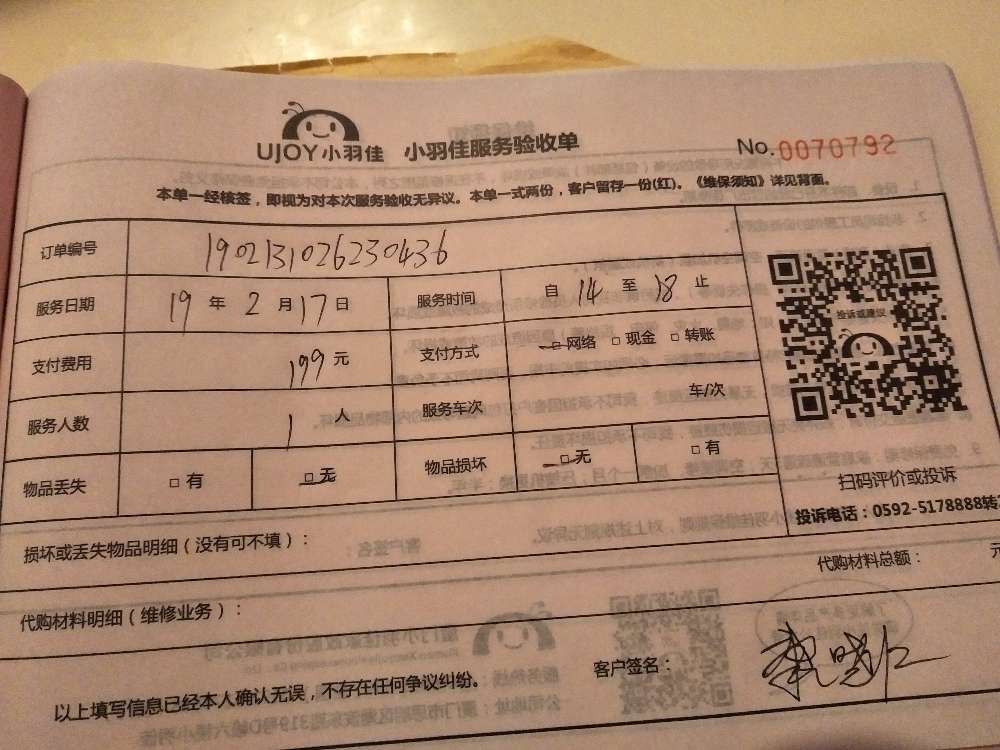 UJOY小羽佳 小羽佳服务验收单 No.0070792
本单一经核签，即视为对本次服务验收无异议。本单一式两份，客户留存一份(红)。《维保须知》详见背面。
订单编号 190213102623​0436
服务日期 19 年 2 月 17 日 服务时间 自 14 至 18 止
支付费用 199 元 支付方式 □ 网络 □ 现金 □ 转账
服务人数 1 人 服务车次 车/次
物品丢失 □ 有 □ 无 物品损坏 □ 无 □ 有
投诉或建议
扫码评价或投诉
投诉电话：0592-5178888转
损坏或丢失物品明细（没有可不填）：
代购材料总额： 元
代购材料明细（维修业务）：
客户签名：
以上填写信息已经本人确认无误，不存在任何争议纠纷。